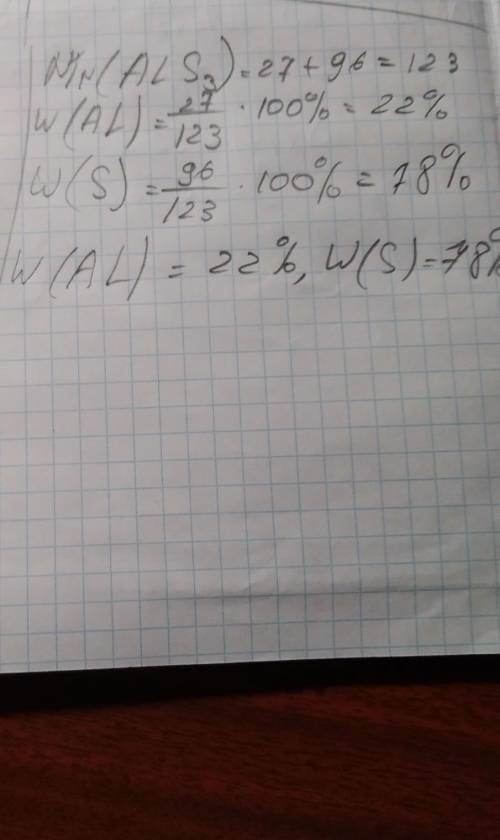 Mr(ALS3)=27+96=123
W(AL)=27/123·100%=22%
W(S)=96/123·100%=78%
W(AL)=22%, W(S)=78%